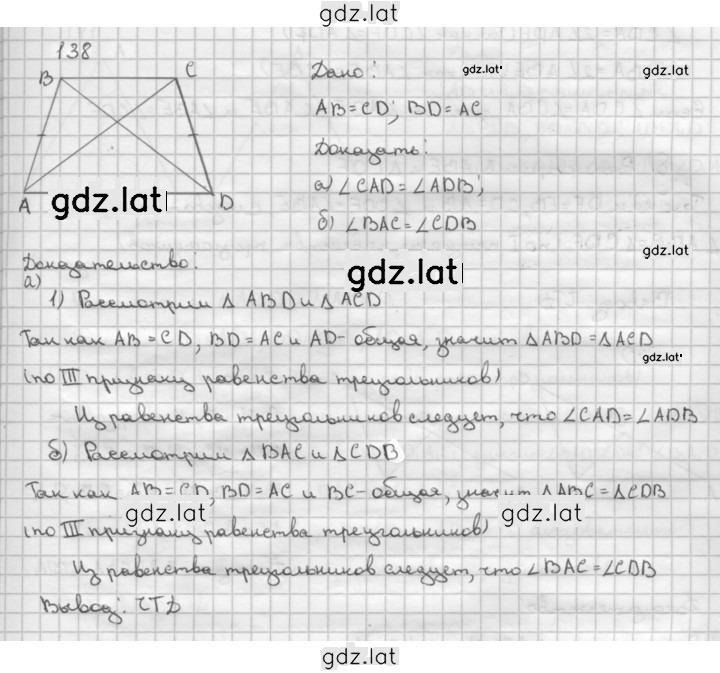 gdz.lat
138
B
C
A
D
gdz.lat
Дано:
gdz.lat
gdz.lat
AB=CD; BD=AC
Доказать:
а) ∠CAD=∠ADB;
б) ∠BAC=∠CDB
gdz.lat
Доказательство:
gdz.lat
а)
1) Рассмотрим △ ABD и △ ACD
Так как AB=CD, BD=AC и AD- общая, значит △ABD=△ACD
gdz.lat
(по III признаку равенства треугольников)
Из равенства треугольников следует, что ∠CAD=∠ADB
б) Рассмотрим △ BAC и △CDB
Так как AB=CD, BD=AC и BC-общая, значит △ABC=△CDB
gdz.lat
gdz.lat
(по III признаку равенства треугольников)
Из равенства треугольников следует, что ∠BAC=∠CDB
Вывод: ЧТД
gdz.lat